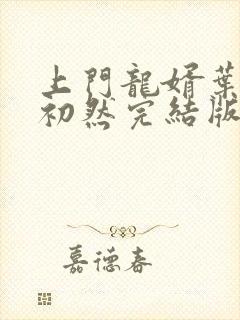 上門龍婿葉
初然完結版
嘉德春